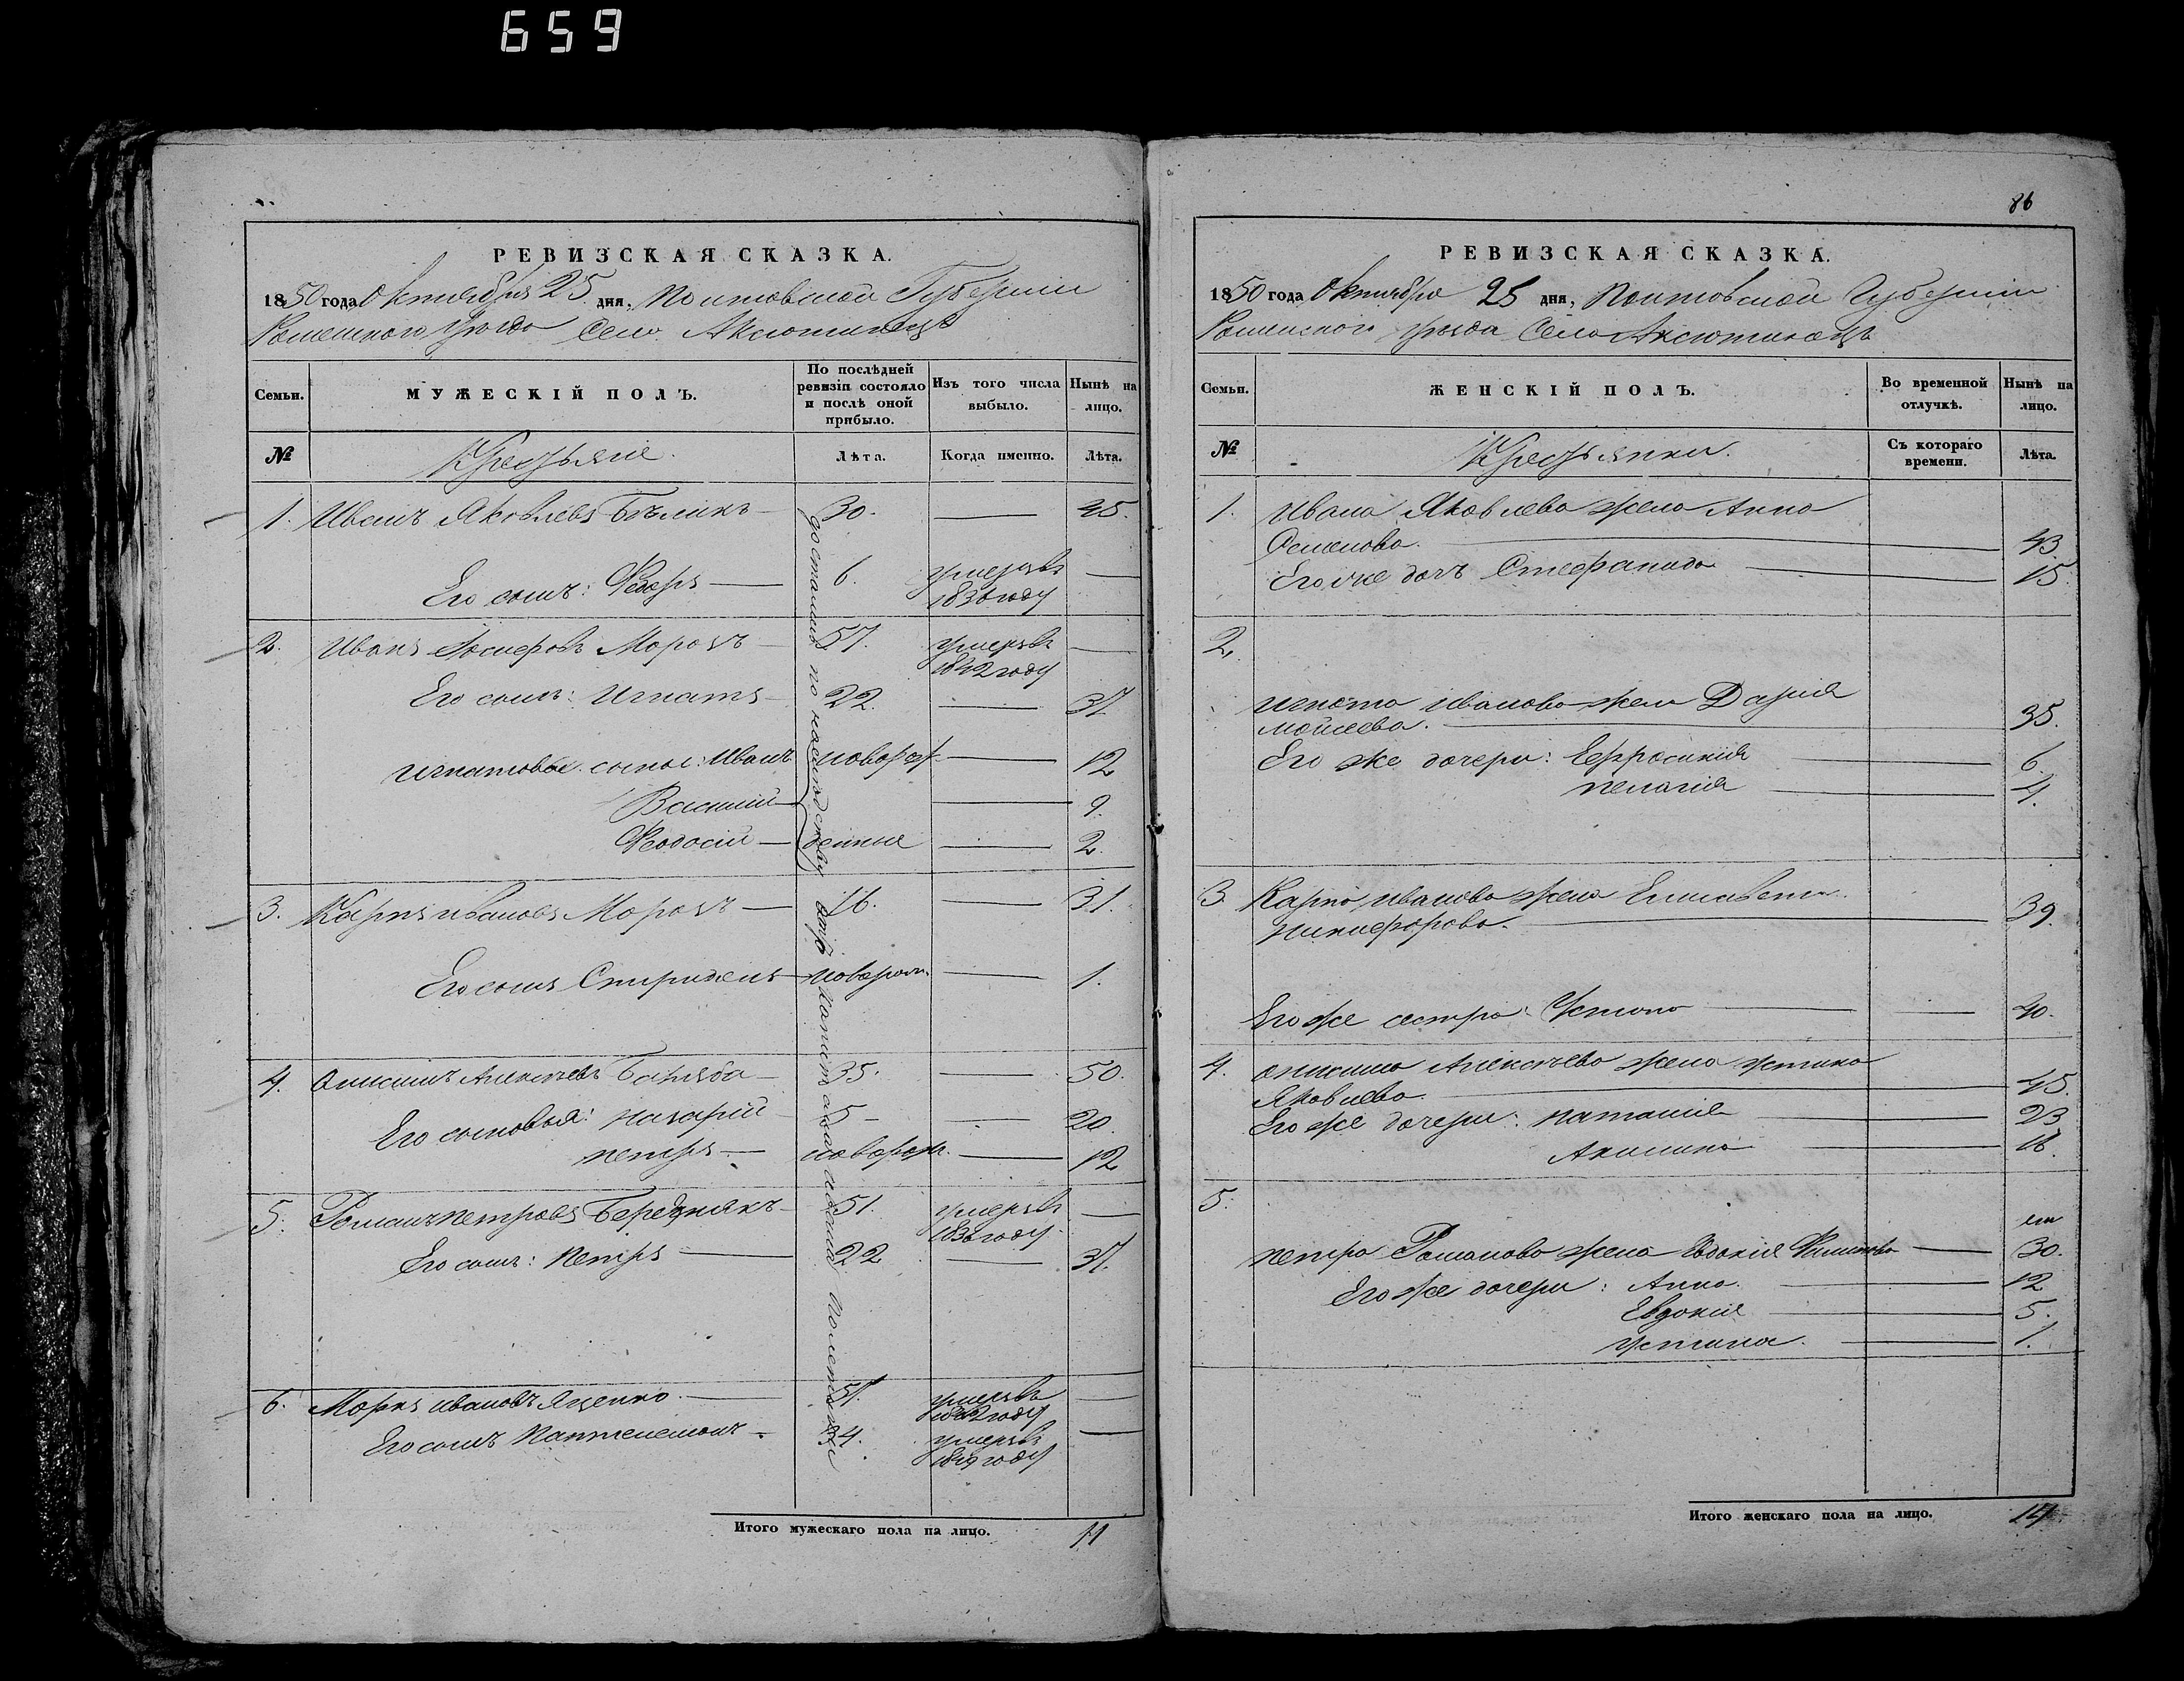 659
РЕВИЗСКАЯ СКАЗКА.
1850 года Октября 25 дня, Полтавской Губернии
Роменского уезда Село Аксютинецъ
Семьи.
МУЖЕСКІЙ ПОЛЪ.
По послѣдней ревизіи состояло и послѣ оной прибыло.
Изъ того числа выбыло.
Нынѣ на лицо.
№
Крестьяне.
Лѣта.
Когда именно.
Лѣта.
1. Иванъ Яковлевъ Бѣликъ 30. 45.
Его сынъ: Федоръ 6. умеръ въ 1836 году
2. Иванъ Иосифовъ Морозъ 57. умеръ въ 1842 году
Его сынъ: Игнатъ 22. 37
Игнатовы сыны: Иванъ новорож 12
Василий 9.
Феодосий денные 2.
3. Карпъ Ивановъ Морозъ 16. 31.
Его сынъ Спиридонъ новорож. 1.
4. Онисимъ Алексѣевъ 35. 50.
Его сыновья: Назарий 5 20
Петръ новорож. 12
5. Романъ Петровъ Бередникъ 51. умеръ въ 1836 году
Его сынъ: Петръ 22 37.
6. Марко Ивановъ Яценко 51. умеръ въ 1842 году
Его сынъ Пантелемонъ 34. умеръ въ 1849 году
достались по наслѣдству отъ
Итого мужескаго пола на лицо. 11
86
РЕВИЗСКАЯ СКАЗКА.
1850 года Октября 25 дня, Полтавской Губернии
Роменского уезда Село Аксютинецъ
Семьи.
ЖЕНСКІЙ ПОЛЪ.
Во временной отлучкѣ.
Нынѣ на лицо.
№
Крестьянки.
Съ котораго времени.
Лѣта.
1. Ивана Яковлева жена Анна
Семенова. 43
Его же дочь Стефанида 15.
2.
Игната Иванова жена Дария
Мойсеева. 35.
Его же дочери: Ефросиния 6.
Пелагия 4.
3. Карпа Иванова жена Елисавета
Никифорова. 39.
Его же сестра: Устина 40.
4. Онисима Алексѣева жена Устина
Яковлева. 45.
Его же дочери: Наталия 23
Акилина 18.
5.
Петра Романова жена Евдокия Филипова 30.
Его же дочери: Анна. 12
Евдокия 5.
Устина. 1.
Итого женскаго пола на лицо. 14